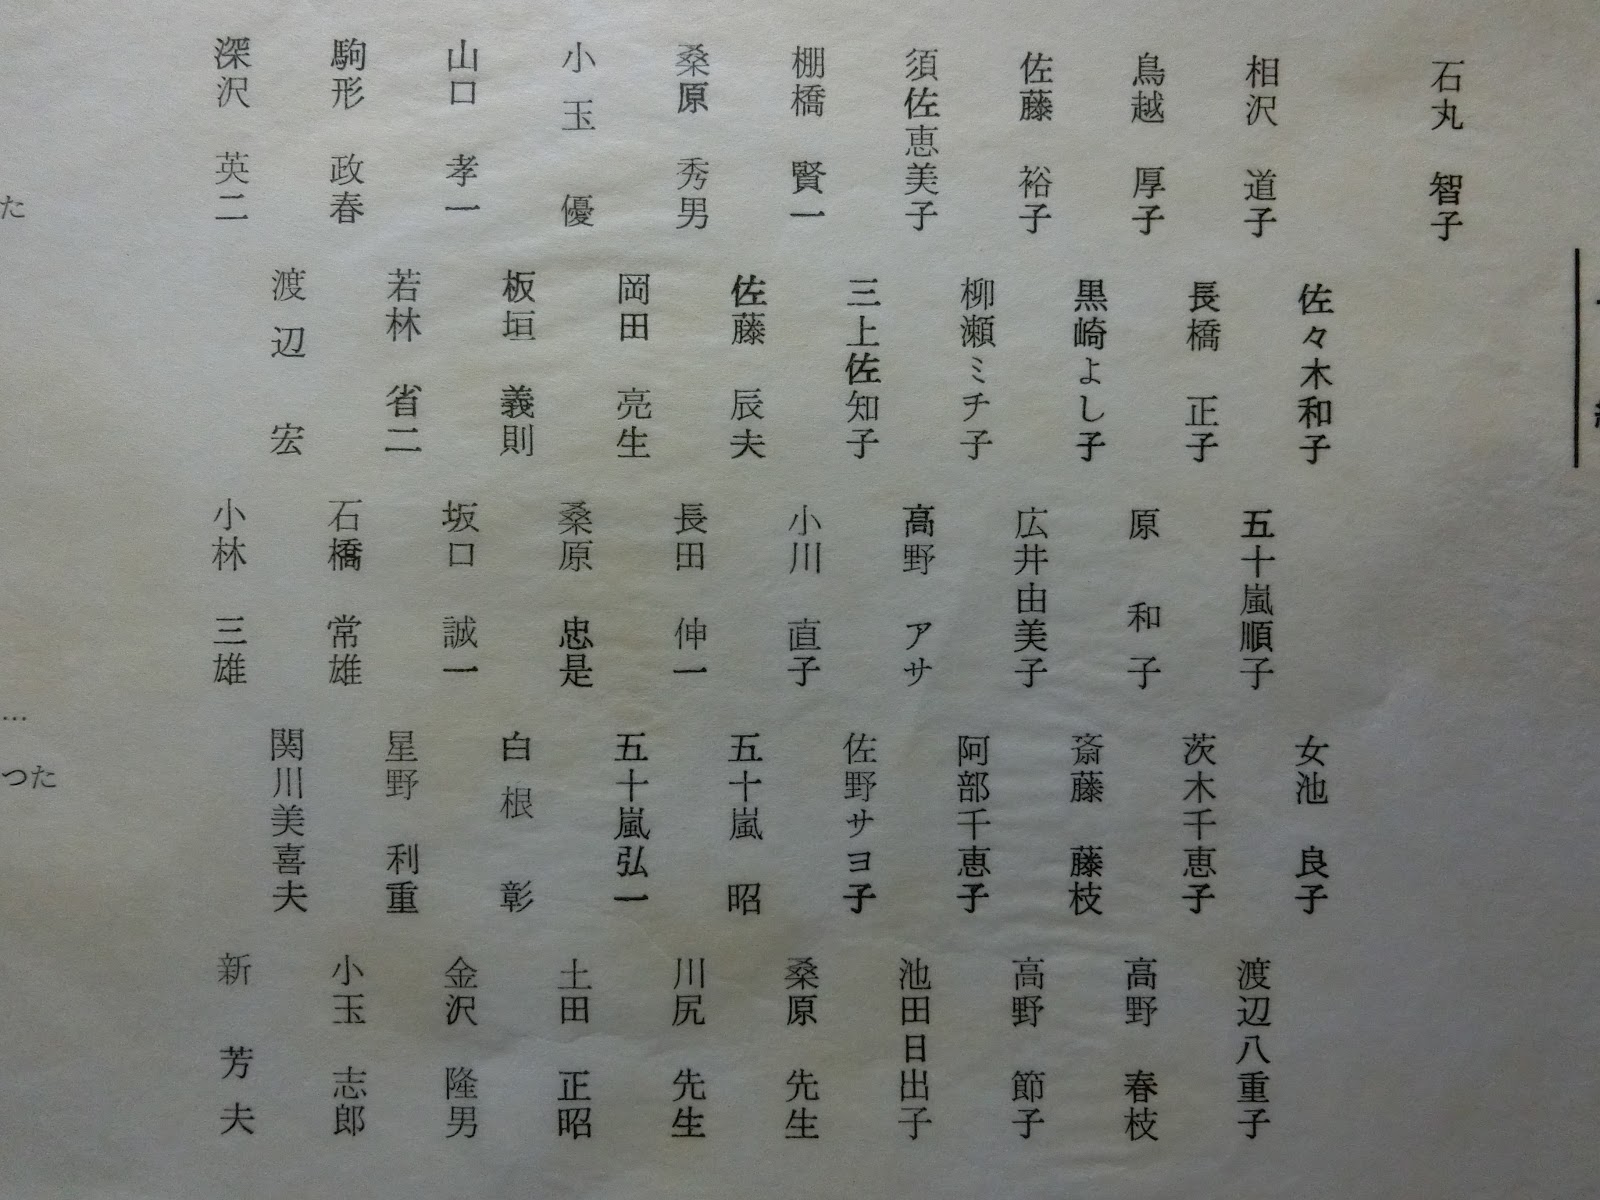 石丸 智子
相沢 道子
鳥越 厚子
佐藤 裕子
須佐恵美子
棚橋 賢一
桑原 秀男
小玉 優
山口 孝一
駒形 政春
深沢 英二
佐々木和子
長橋 正子
黒崎よし子
柳瀬ミチ子
三上佐知子
佐藤 辰夫
岡田 亮生
板垣 義則
若林 省二
渡辺 宏
五十嵐順子
原 和子
広井由美子
高野 アサ
小川 直子
長田 伸一
桑原 忠是
坂口 誠一
石橋 常雄
小林 三雄
女池 良子
茨木千恵子
斎藤 藤枝
阿部千恵子
佐野サヨ子
五十嵐 昭
五十嵐弘一
白根 彰
星野 利重
関川美喜夫
渡辺八重子
高野 春枝
高野 節子
池田日出子
桑原 先生
川尻 先生
土田 正昭
金沢 隆男
小玉 志郎
新 芳夫
た
…
つた